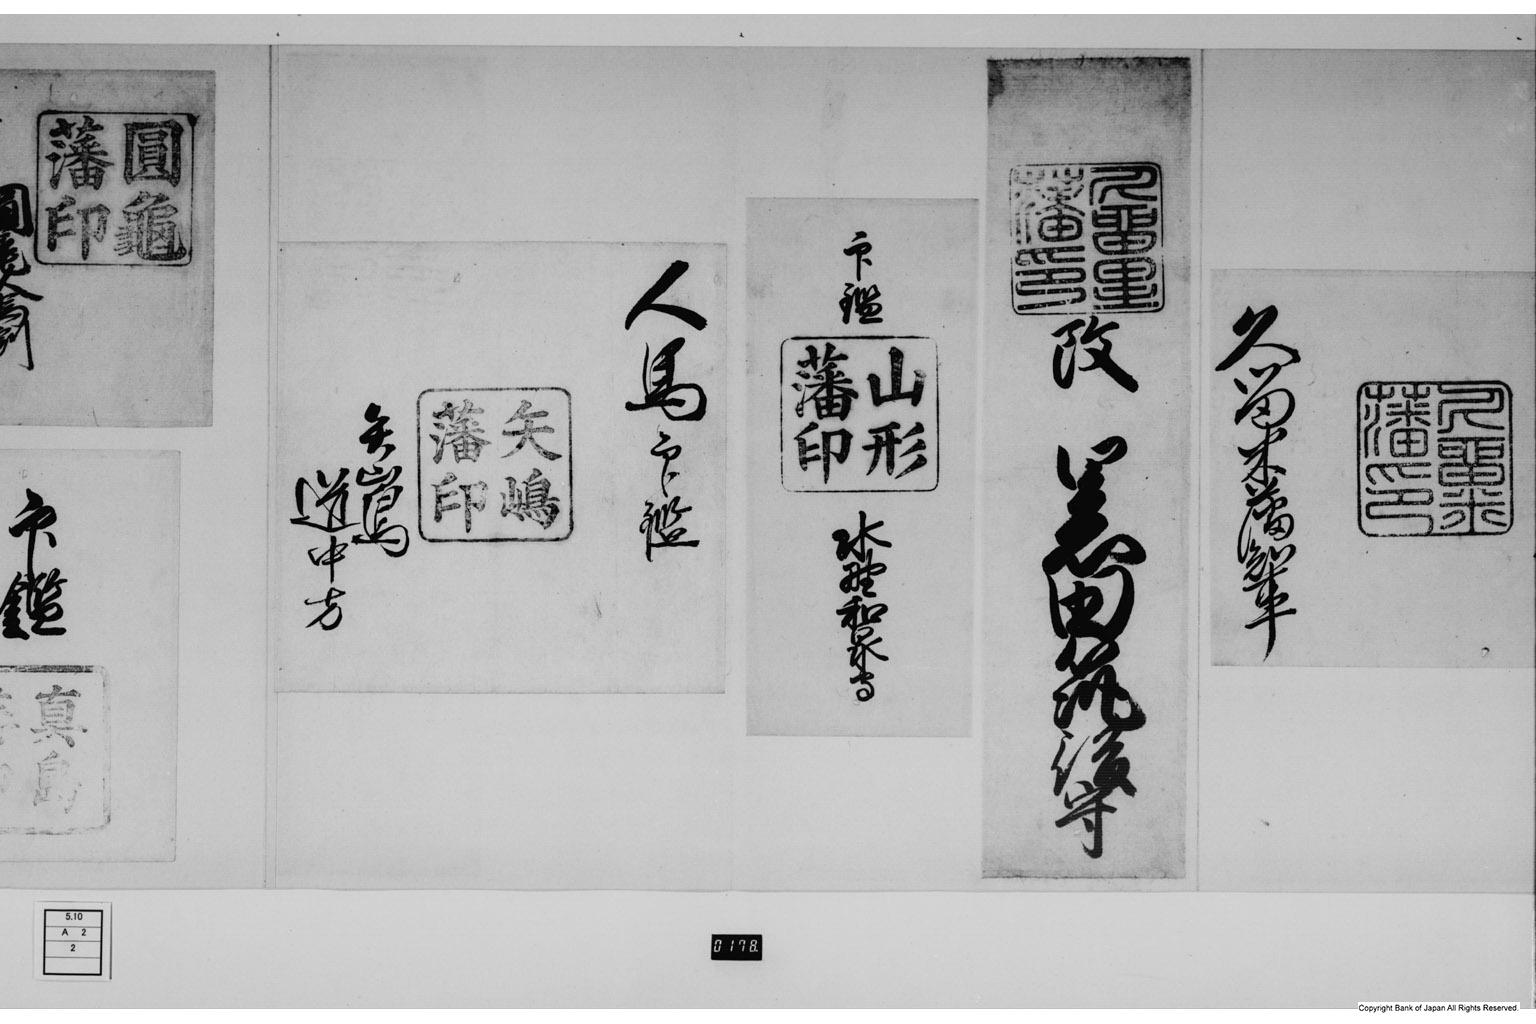 久留米
藩印
久留米藩
久留里
藩印
改 黒田筑後守
印鑑
山形
藩印
水野和泉守
人馬印鑑
矢嶋
藩印
矢嶋
道中方
圓龜
藩印
印鑑
真島
5.10
A 2
2
0178
Copyright Bank of Japan All Rights Reserved.